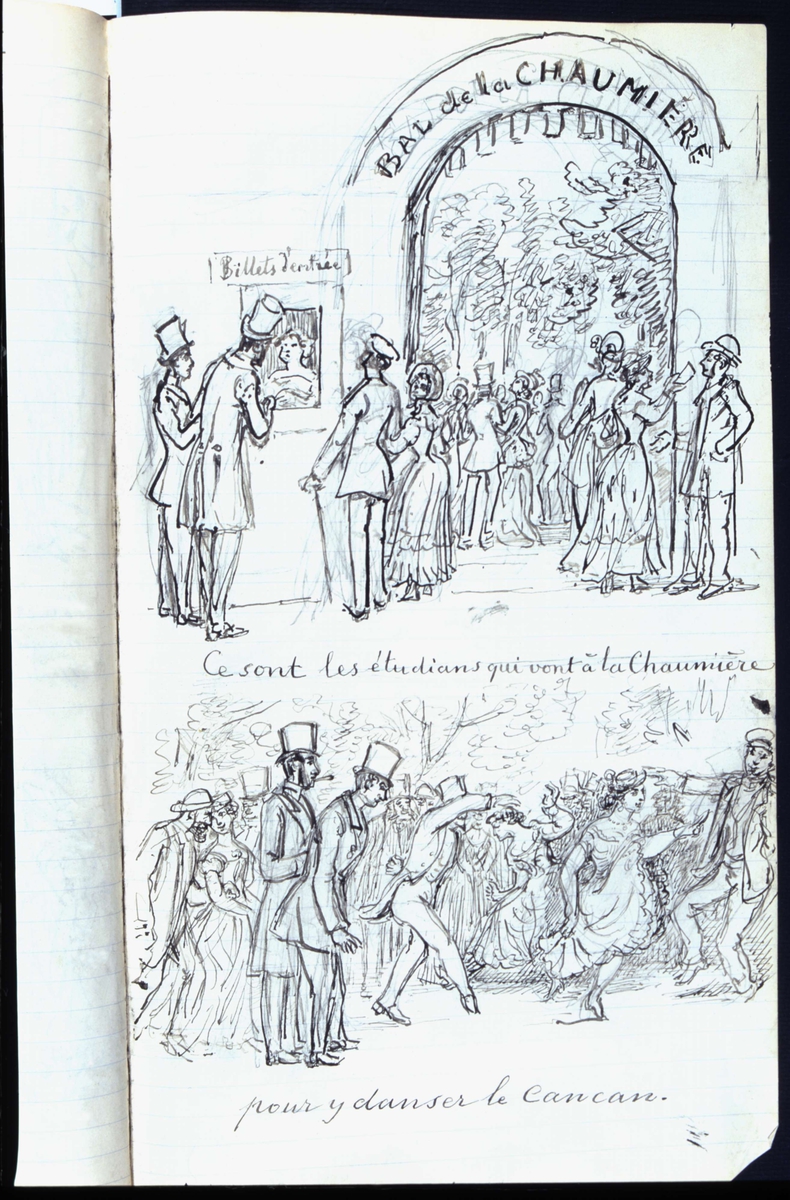 BAL de la CHAUMIÈRE
Billets d'entrée
Ce sont les étudians qui vont à la Chaumière
pour y danser le Cancan.